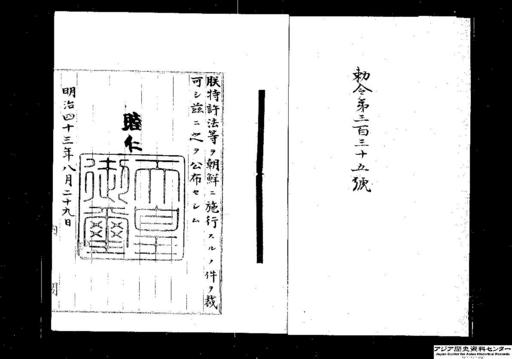 勅令第三百三十五號
朕特許法等ヲ朝鮮ニ施行スルノ件ヲ裁
可シ玆ニ之ヲ公布セシム
睦仁
天皇御璽
明治四十三年八月二十九日
内閣
アジア歴史資料センター
Japan Center for Asian Historical Records